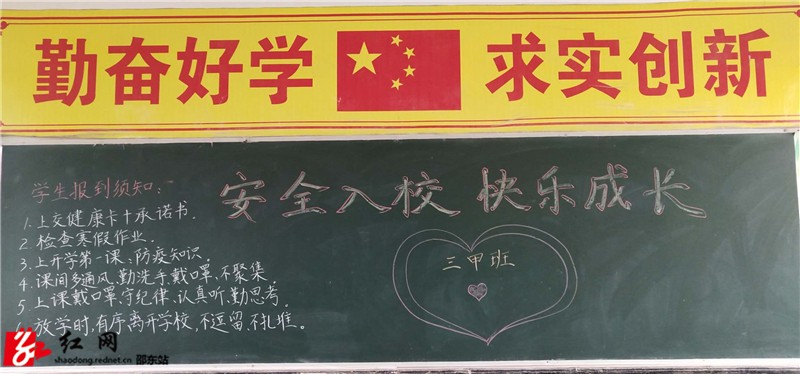 勤奋好学 求实创新
安全入校 快乐成长
学生报到须知:
1.上交健康卡十承诺书.
2.检查寒假作业.
3.上开学第一课:防疫知识.
4.课间多通风.勤洗手.戴口罩.不聚集
5.上课戴口罩.守纪律.认真听.勤思考.
放学时,有序离开学校,不逗留.不扎堆。
三甲班
红网
shaodong.rednet.cn 邵东站